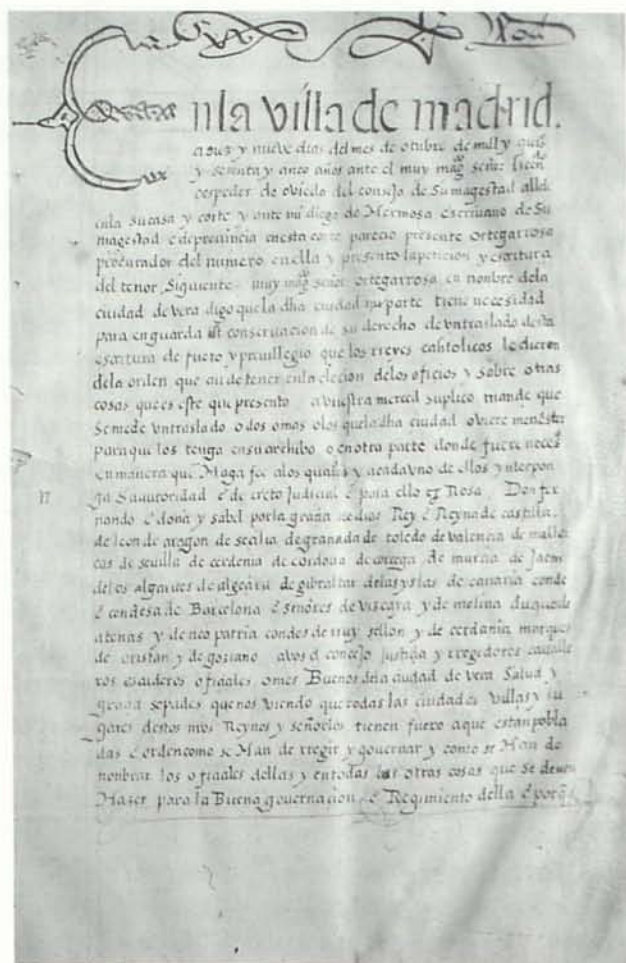 En la villa de madrid.
a diez y nueve dias del mes de otubre de mill y quis
y setenta y cinco años ante el muy mag señor licen
cespedes de oviedo del consejo de su magestad allde
en la su casa y corte y ante mi diego de Hermosa escriuano de Su
magestad e de provincia en esta corte parecio presente ortegarrosa
procurador del numero en ella y presento la peticion y escritura
del tenor Siguiente muy mag señor ortegarrosa en nombre dela
ciudad de vera digo que la dha ciudad mi parte tiene necesidad
para en guarda conseruacion de su derecho de vn traslado desta
escritura de fuero y preuillegio que los rreyes catholicos le dieron
dela orden que an de tener en la elecion delos oficios y sobre otras
cosas que es este que presento a vuestra merced suplico mande que
Se me de vn traslado o dos o mas o los que la dha ciudad oviere menester
para que los tenga en su archibo o en otra parte donde fuere neces
en manera que Haga fee a los quales y a cada vno de ellos ynterpon
ga Su autoridad e decreto Judicial e para ello Rosa Don fer
17
nando e doña ysabel por la graçia de dios Rey e Reyna de castilla
de leon de aragon de secilia de granada de toledo de valencia de mallor
cas de seuilla de cerdenia de cordoua de corçega de murcia de Jaen
delos algarues de algezira de gibraltar delas yslas de canaria conde
e condesa de Barcelona e señores de vizcaya y de molina duques de
atenas y de neopatria condes de rruysellon y de cerdania marques
de oristan y de goziano a vos el concejo Justicia y rregidores caualle
ros escuderos oficiales omes Buenos dela ciudad de vera Salud y
gracia sepades que nos viendo que todas las ciudades villas y lu
gares destos nros Reynos y señorios tienen fuero a que estan pobla
das e orden como se Han de rregir y gouernar y como se Han de
nombrar los oficiales dellas y en todas las otras cosas que se deuen
Hazer para la Buena gouernacion e Regimiento della e porq